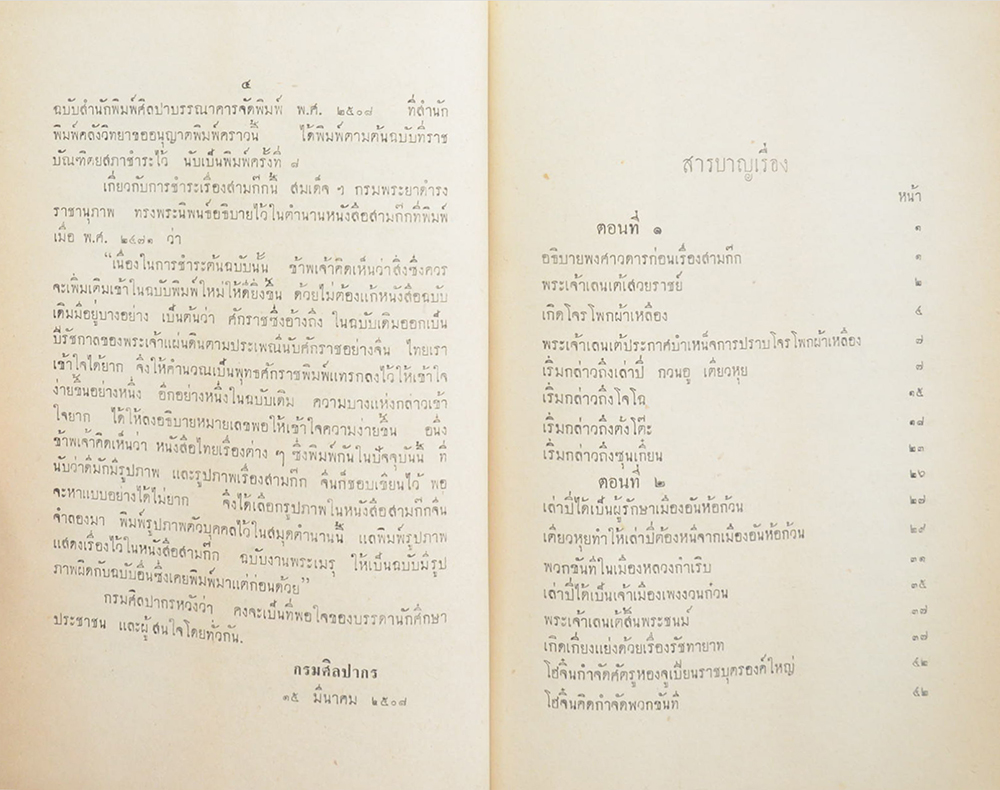 ๔
ฉบับสำนักพิมพ์ศิลปาบรรณาคารจัดพิมพ์ พ.ศ. ๒๕๐๗ ที่สำนัก
พิมพ์คลังวิทยาขออนุญาตพิมพ์คราวนี้ ได้พิมพ์ตามต้นฉบับที่ราช
บัณฑิตยสภาชำระไว้ นับเป็นพิมพ์ครั้งที่ ๗
เกี่ยวกับการชำระเรื่องสามก๊กนี้ สมเด็จ ฯ กรมพระยาดำรง
ราชานุภาพ ทรงพระนิพนธ์อธิบายไว้ในตำนานหนังสือสามก๊กที่พิมพ์
เมื่อ พ.ศ. ๒๔๗๑ ว่า
“เนื่องในการชำระต้นฉบับนั้น ข้าพเจ้าคิดเห็นว่าสิ่งซึ่งควร
จะเพิ่มเติมเข้าในฉบับพิมพ์ใหม่ให้ดียิ่งขึ้น ด้วยไม่ต้องแก้หนังสือฉบับ
เดิมมีอยู่บางอย่าง เป็นต้นว่า ศักราชซึ่งอ้างถึง ในฉบับเดิมออกเป็น
ปีรัชกาลของพระเจ้าแผ่นดินตามประเพณีนับศักราชอย่างจีน ไทยเรา
เข้าใจได้ยาก จึงให้คำนวณเป็นพุทธศักราชพิมพ์แทรกลงไว้ให้เข้าใจ
ง่ายขึ้นอย่างหนึ่ง อีกอย่างหนึ่งในฉบับเดิม ความบางแห่งกล่าวเข้า
ใจยาก ได้ให้ลงอธิบายหมายเลขพอให้เข้าใจความง่ายขึ้น อนึ่ง
ข้าพเจ้าคิดเห็นว่า หนังสือไทยเรื่องต่าง ๆ ซึ่งพิมพ์กันในปัจจุบันนี้ ที่
นับว่าดีมักมีรูปภาพ และรูปภาพเรื่องสามก๊ก จีนก็ชอบเขียนไว้ พอ
จะหาแบบอย่างได้ไม่ยาก จึงได้เลือกรูปภาพในหนังสือสามก๊กจีน
จำลองมา พิมพ์รูปภาพตัวบุคคลไว้ในสมุดตำนานนี้ แลพิมพ์รูปภาพ
แสดงเรื่องไว้ในหนังสือสามก๊ก ฉบับงานพระเมรุ ให้เป็นฉบับมีรูป
ภาพผิดกับฉบับอื่นซึ่งเคยพิมพ์มาแต่ก่อนด้วย”
กรมศิลปากรหวังว่า คงจะเป็นที่พอใจของบรรดานักศึกษา
ประชาชน และผู้สนใจโดยทั่วกัน.
กรมศิลปากร
๓๕ มีนาคม ๒๕๐๗
สารบาญเรื่อง
หน้า
ตอนที่ ๑ ๑
อธิบายพงศาวดารก่อนเรื่องสามก๊ก ๑
พระเจ้าเลนเต้เสวยราชย์ ๒
เกิดโจรโพกผ้าเหลือง ๔
พระเจ้าเลนเต้ประกาศบำเหน็จการปราบโจรโพกผ้าเหลือง ๗
เริ่มกล่าวถึงเล่าปี่ กวนอู เตียวหุย ๗
เริ่มกล่าวถึงโจโฉ ๑๕
เริ่มกล่าวถึงตั๋งโต๊ะ ๑๗
เริ่มกล่าวถึงซุนเกี๋ยน ๒๓
ตอนที่ ๒ ๒๖
เล่าปี่ได้เป็นผู้รักษาเมืองอันห้อก้วน ๒๗
เตียวหุยทำให้เล่าปี่ต้องหนีจากเมืองอันห้อก้วน ๒๙
พวกขันทีในเมืองหลวงกำเริบ ๓๑
เล่าปี่ได้เป็นเจ้าเมืองเพงงวนก๋วน ๓๕
พระเจ้าเลนเต้สิ้นพระชนม์ ๓๗
เกิดเกี่ยงแย่งด้วยเรื่องรัชทายาท ๓๗
โฮจิ๋นกำจัดศัตรูหองจูเปียนราชบุตรองค์ใหญ่ ๔๒
โฮจิ๋นคิดกำจัดพวกขันที ๔๒